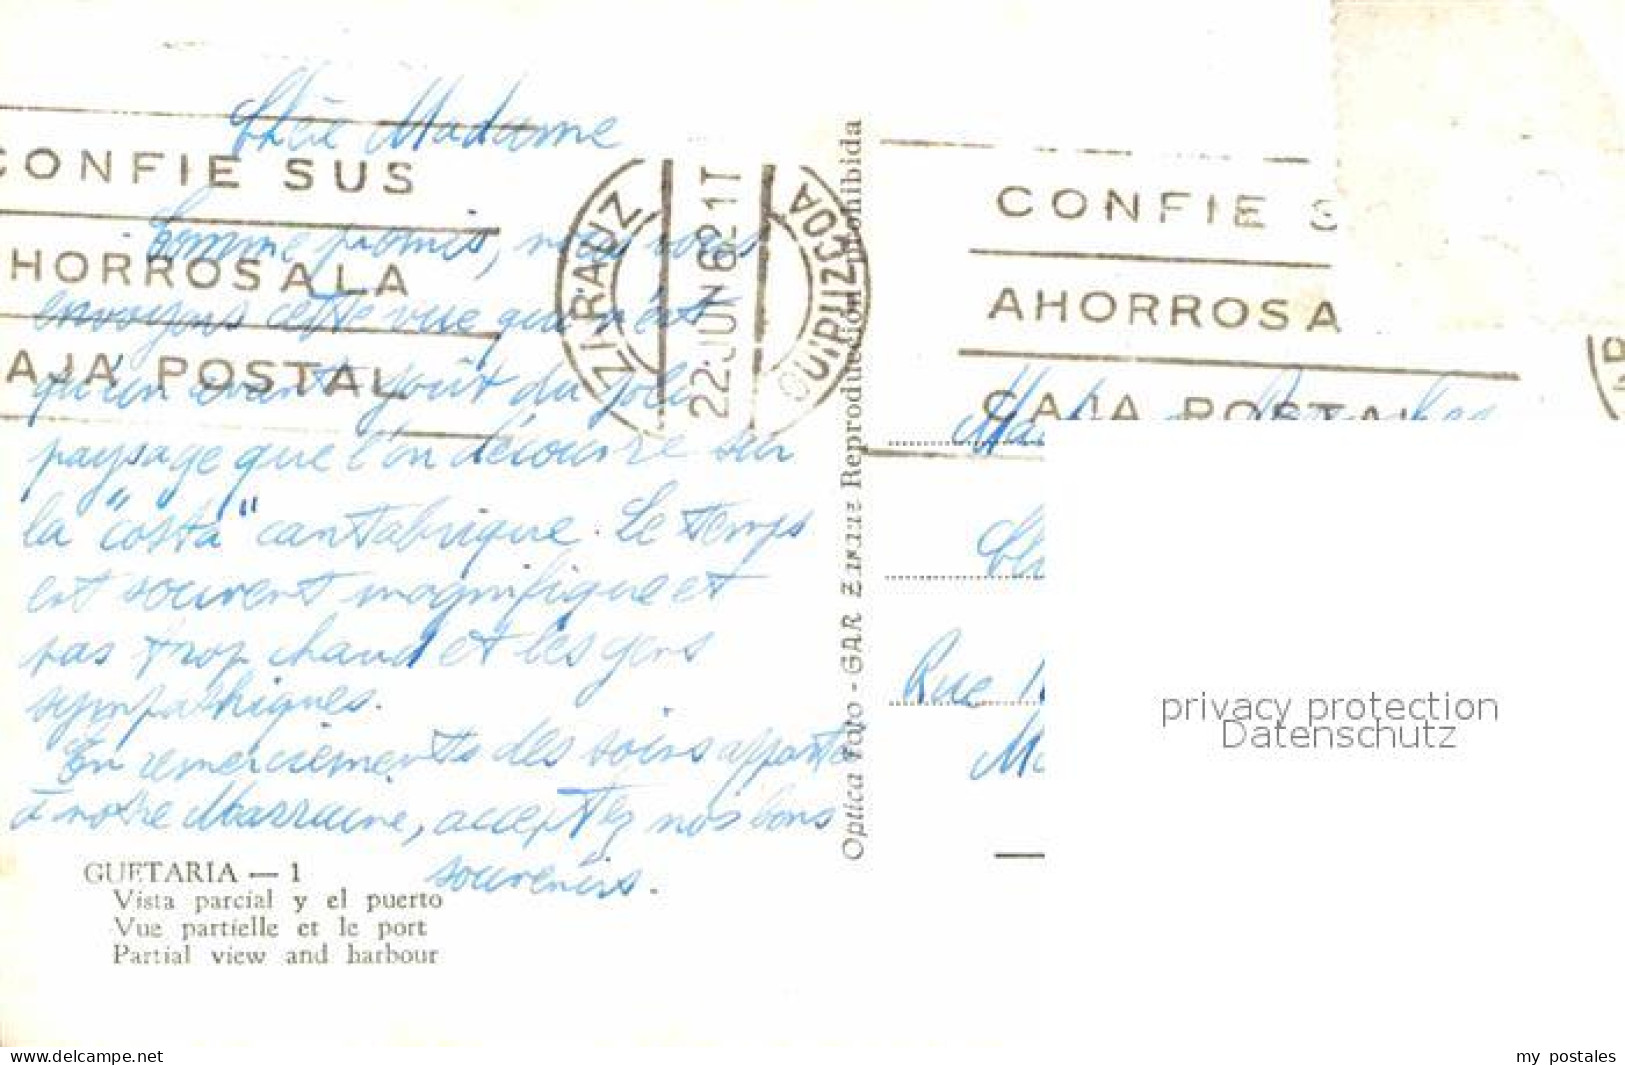 Chère Madame
Comme promis, nous vous
envoyons cette vue qui n'est
qu'un avant goût du joli
paysage que l'on découvre sur
la "costa" cantabrique. Le temps
est souvent magnifique et
pas trop chaud et les gens
sympathiques.
En remerciements des soins apportés
à notre Marraine, acceptez nos bons
souvenirs.
CONFIE SUS
AHORROS A LA
CAJA POSTAL
ZARAUZ
22 JUN 62 1T
GUIPUZCOA
CONFIE S
AHORROS A
CAJA POSTAL
GUETARIA — 1
Vista parcial y el puerto
Vue partielle et le port
Partial view and harbour
Optica Foto - GAR Zarauz Reproduccion prohibida
Rue
privacy protection
Datenschutz
www.delcampe.net
my_postales